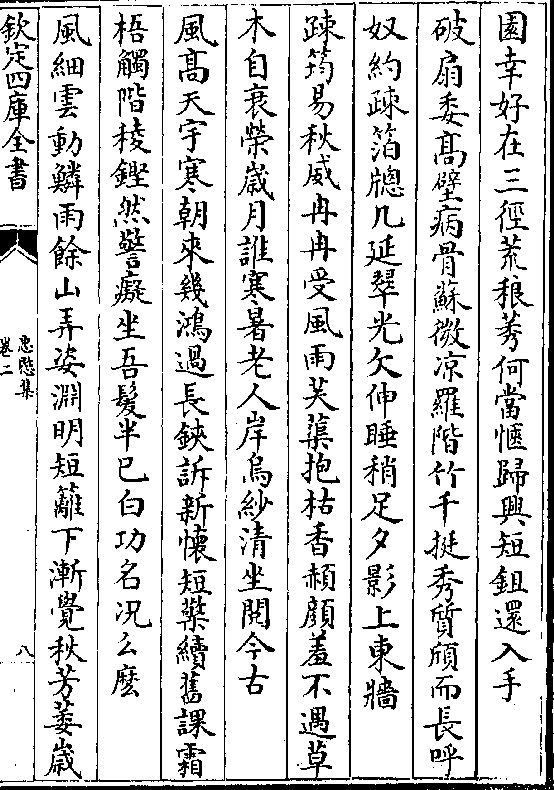 園幸好在三徑荒稂莠何當愜歸興短鉏還入手
破扇委髙壁病骨蘇微凉羅階竹千挺秀質頎而長呼
奴約疎箔牕几延翠光欠伸睡稍足夕影上東牆
疎筠易秋威冉冉受風雨芙蕖抱枯香頳顔羞不遇草
木自衰榮嵗月誰寒暑老人岸烏紗清坐閲今古
風髙天宇寒朝來幾鴻過長鋏訴新懐短檠續舊課霜
梧觸階稜鏗然警癡坐吾髪半已白功名况么麽
風細雲動鱗雨餘山弄姿淵明短籬下漸覺秋芳萎嵗
欽定四庫全書
惠隱集
卷二
八